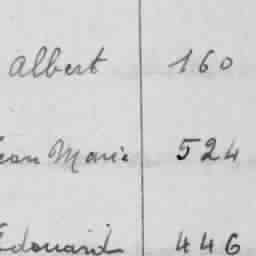 Albert 160
Jean Marie 524
Edouard 446